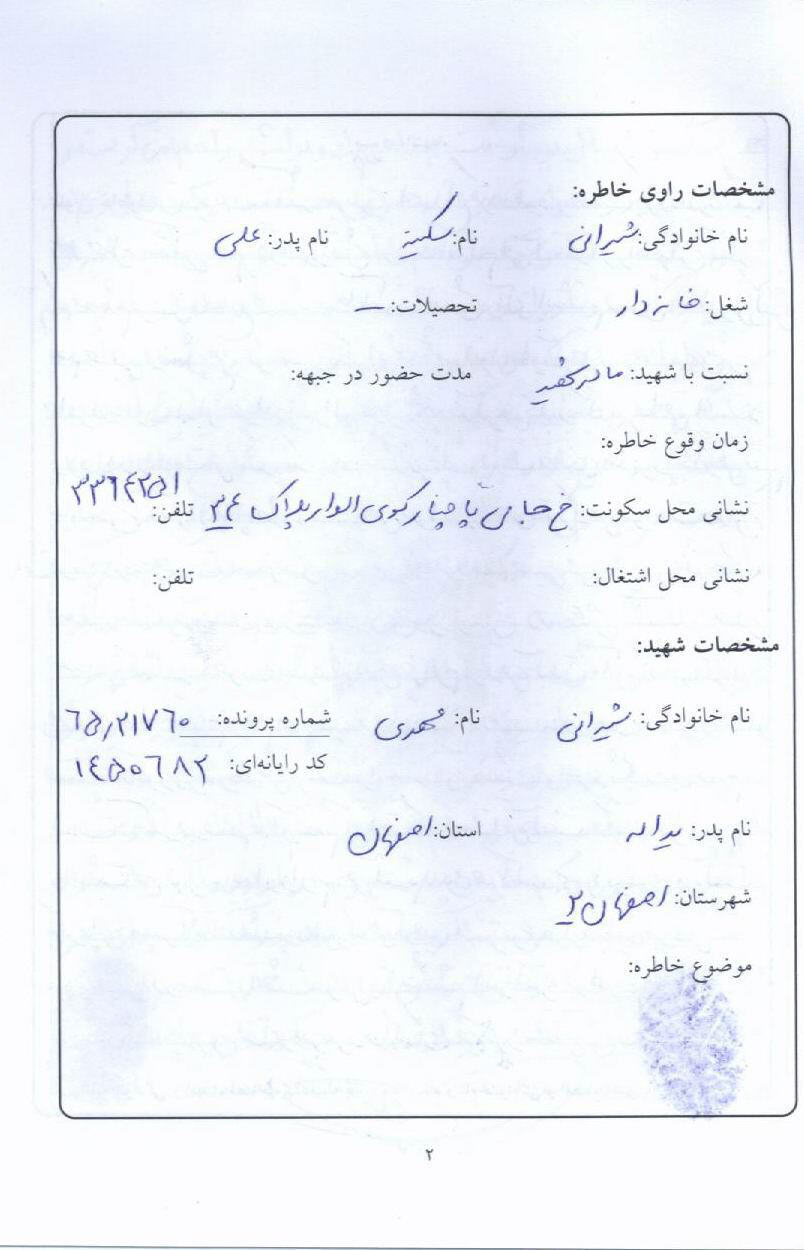 مشخصات راوی خاطره:
نام خانوادگی: شیرانی نام: سکینه نام پدر: علی
شغل: خانه دار تحصیلات: —
نسبت با شهید: مادر شهید مدت حضور در جبهه:
زمان وقوع خاطره:
نشانی محل سکونت: خ جی پا چنار کوی الوار پلاک ۳۴ تلفن: ۳۳۶۴۲۵۱
نشانی محل اشتغال: تلفن:
مشخصات شهید:
نام خانوادگی: شیرانی نام: محمدی شماره پرونده: ۶۵/۲۱۷۶۰
کد رایانه‌ای: ۱۴۵۵۶۸۲
نام پدر: یداله استان: اصفهان
شهرستان: اصفهان ۲
موضوع خاطره:
۲